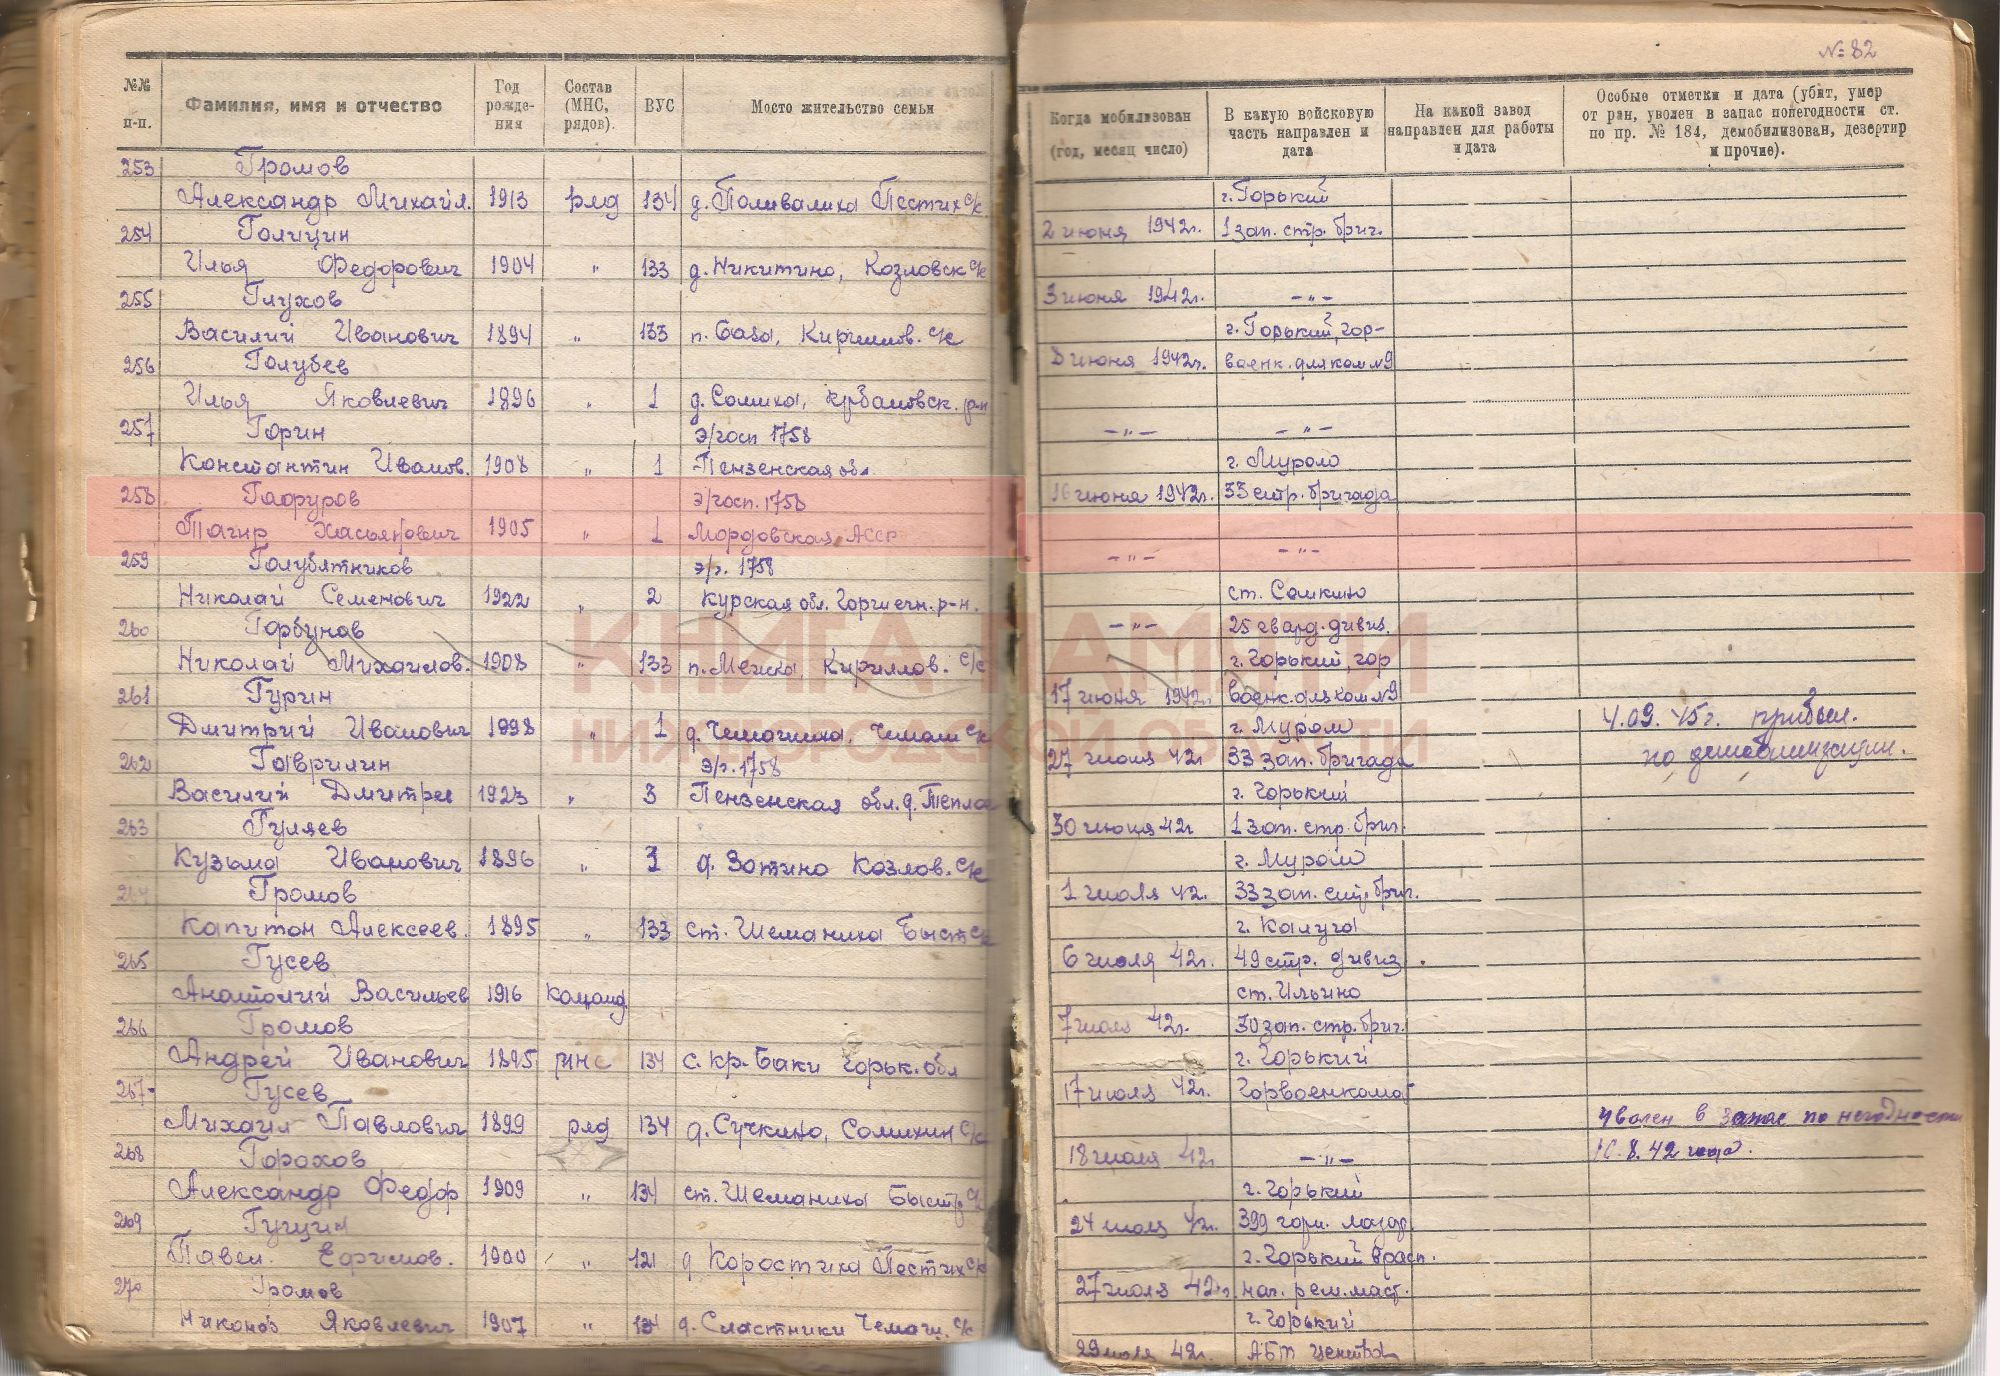 № 82
№№ п-п.
Фамилия, имя и отчество
Год рожде-ния
Состав (МНС, рядов).
ВУС
Место жительство семьи
Когда мобилизован (год, месяц число)
В какую войсковую часть направлен и дата
На какой завод направлен для работы и дата
Особые отметки и дата (убит, умер от ран, уволен в запас по негодности ст. по пр. № 184, демобилизован, дезертир и прочие).
253 Громов
Александр Михайл. 1913 ряд 134 д. Поливаниха Пестих с/с
г. Горький
254 Голицин
2 июня 1942г. 1 зап. стр. бриг.
Илья Федорович 1904 " 133 д. Никитино, Козловск с/с
255 Глухов
3 июня 1942г. — " —
Василий Иванович 1894 " 133 п. База, Кириллов. с/с
г. Горький, гор-
256 Голубев
3 июня 1942г. военк. для ком №9
Илья Яковлевич 1896 " 1 д. Сомиха,
257 Горин
э/госп 1758
— " — — " —
Константин Иванов. 1908 " 1 Пензенская обл
г. Муром
258 Гафуров
э/госп. 1758
16 июня 1942г. 33 стр. бригада
Тагир Хасьянович 1905 " 1 Мордовская АССР
— " — — " —
259 Голубятников
э/г. 1758
Николай Семенович 1922 " 2 Курская обл. р-н.
ст. Сомкино
260 Горбунов
— " — 25 гвард. дивиз.
Николай Михайлов. 1908 " 133 Кириллов. с/с
г. Горький, гор
261 Гурин
17 июня 1942г военк. для ком №9
Дмитрий Иванович 1898 " 1 д. Чемашиха, Чемаш с/с
г. Муром
4.09.45г. прибыл.
262 Гаврилин
э/г. 1758
27 июня 42г 33 зап. бригада
по демобилизации.
Василий Дмитрие 1923 " 3 Пензенская обл. д. Тепло
г. Горький
263 Гуляев
30 июня 42г 1 зап. стр. бриг.
Кузьма Иванович 1896 " 1 д. Зотино Козлов. с/с
г. Муром
264 Громов
1 июля 42г. 33 зап. стр. бриг.
Капитон Алексеев. 1895 " 133 ст. Шеманиха Быст с/с
г. Калуга
265 Гусев
6 июля 42г. 49 стр. дивиз.
Анатолий Васильев 1916 команд
ст. Ильино
266 Громов
7 июля 42г. 30 зап. стр. бриг.
Андрей Иванович 1895 мнс 134 с. Кр-Баки Горьк. обл
г. Горький
267 Гусев
17 июля 42г. Горвоенкомат
Михаил Павлович 1899 ряд 134 д. Сучкино, Сомихин с/с
уволен в запас по негодности
268 Горохов
18 июля 42г — " —
8. 42 года.
Александр Федор 1909 " 134 ст. Шеманиха Быстр с/с
г. Горький
269 Гущин
24 июля 42г. 399
Павел Ефимов. 1900 " 121 д Коростиха Пестих с/с
г. Горький в расп.
270 Громов
27 июля 42г. нач. рем. маст.
Никоноз Яковлевич 1907 " 134 д. Сластники Чемаш. с/с
г. Горький
29 июля 42г. АБТ центр
КНИГА ПАМЯТИ
НИЖЕГОРОДСКОЙ ОБЛАСТИ